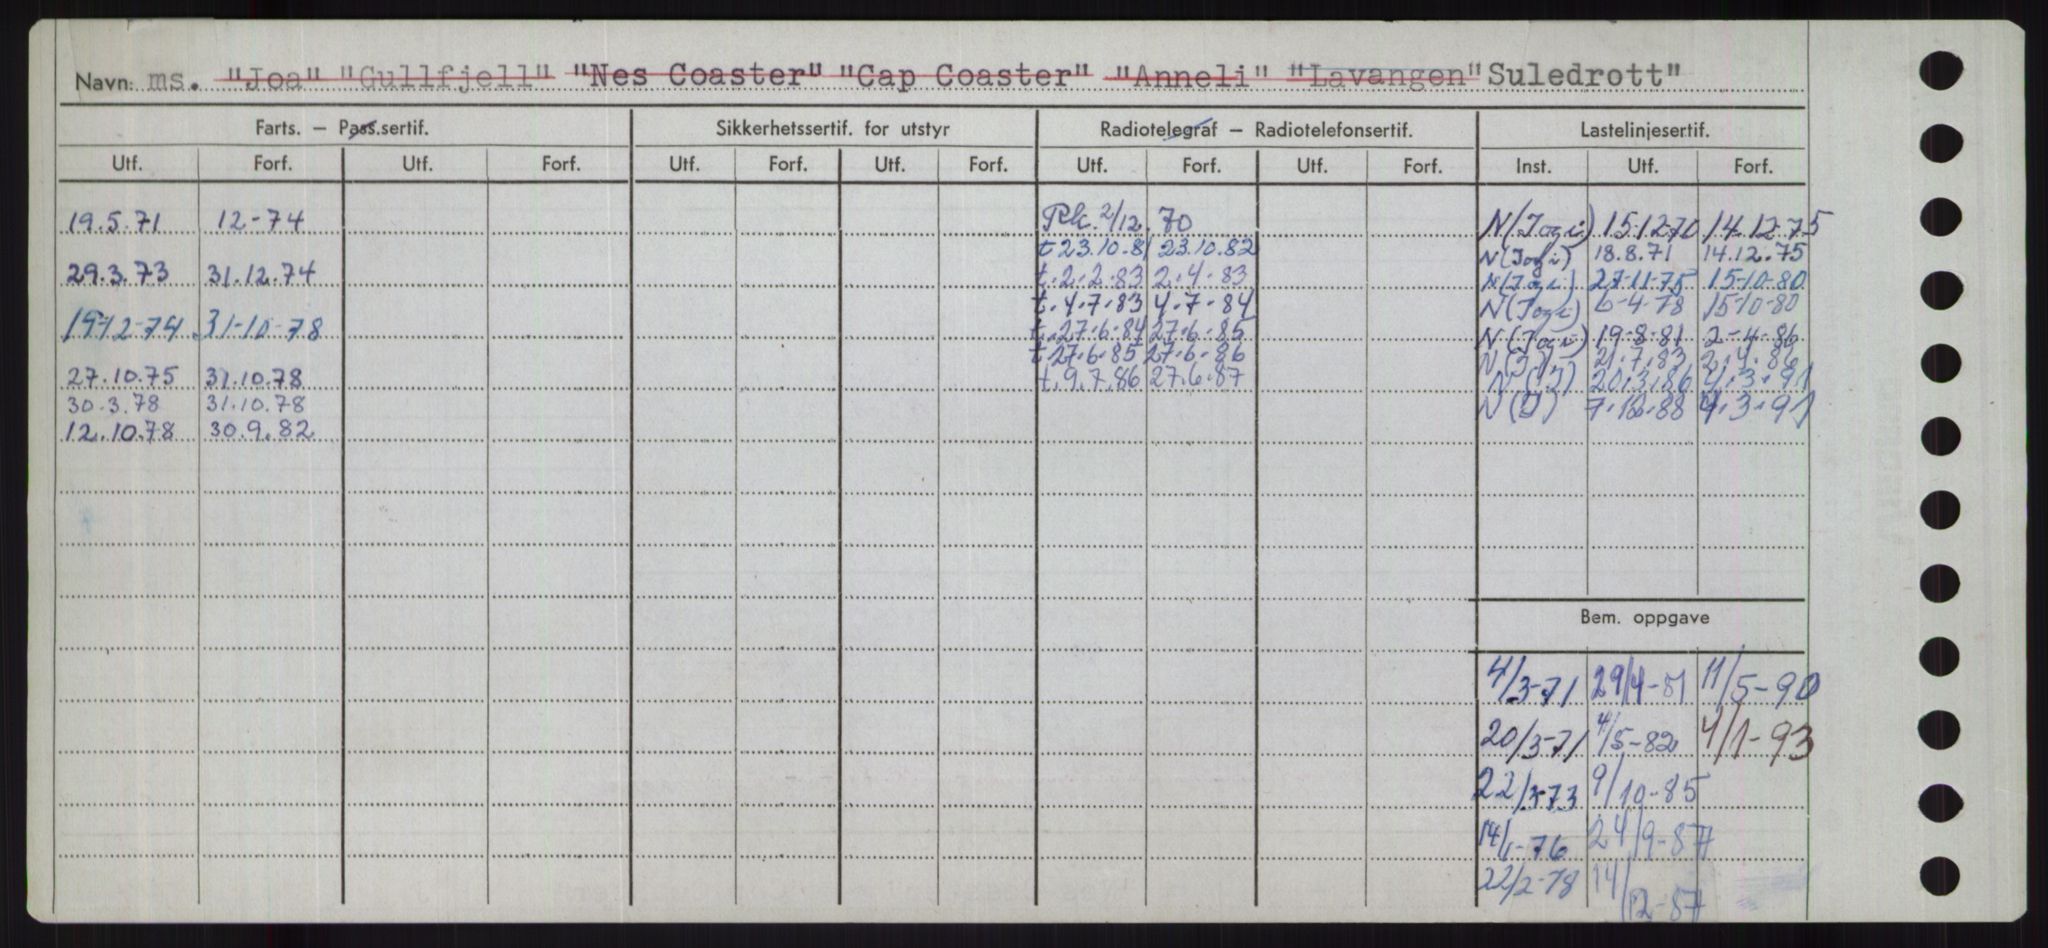 Navn: ms. "Joa" "Gullfjell" "Nes Coaster" "Cap Coaster" "Anneli" "Lavangen" Suledrott"
Farts. – Pass.sertif. Sikkerhetssertif. for utstyr Radiotelegraf – Radiotelefonsertif. Lastelinjesertif.
Utf. Forf. Utf. Forf. Utf. Forf. Utf. Forf. Utf. Forf. Utf. Forf. Inst. Utf. Forf.
19.5.71 12-74 2/12.70 N(Jogi) 15-12-70 14-12-75
t 23.10.81 23.10.82 N(Jogi) 18.8.71 14.12.75
29.3.73 31.12.74 t.2.2.83 2.4.83 N(Jogi) 27-11-75 15-10-80
t.4.7.83 4.7.84 N(Jogi) 6-4-78 15-10-80
19-12-74 31-10-78 t.27.6.84 27.6.85 N(Jogi) 19-8-81 2-4-86
t.27.6.85 27.6.86 N(J) 21.7.83 2.4.86
27.10.75 31.10.78 t.9.7.86 27.6.87 N(J) 20.3.86 4.3.91
30.3.78 31.10.78 N(J) 88 4.3.91
12.10.78 30.9.82
Bem. oppgave
4/3-71 29/4-81 11/5-90
20/3-71 4/5-82 4/1-93
22/3-73 9/10-85
14/1-76 24/9-87
22/2-78 14/12-87